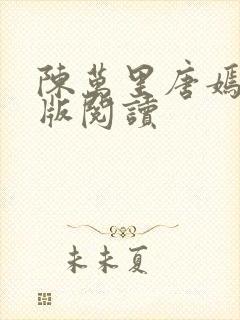 陳萬里唐嫣
版閱讀
未未夏